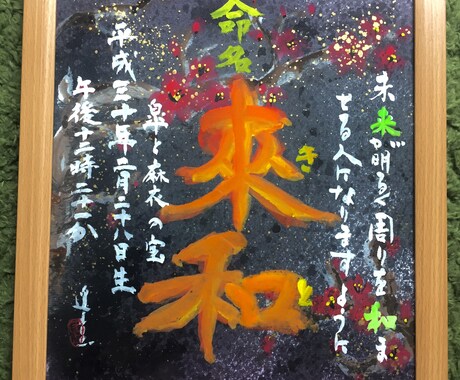 命名
未来が明るく周りを和ま
せる人になりますように
來和
きと
皐と麻衣の宝
平成三十年二月二十八日生
午後十二時二十一分